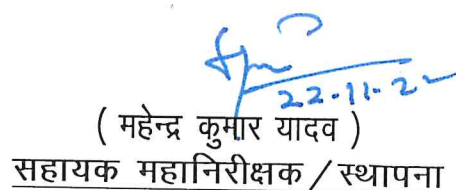 22-11-22
( महेन्द्र कुमार यादव )
सहायक महानिरीक्षक/स्थापना